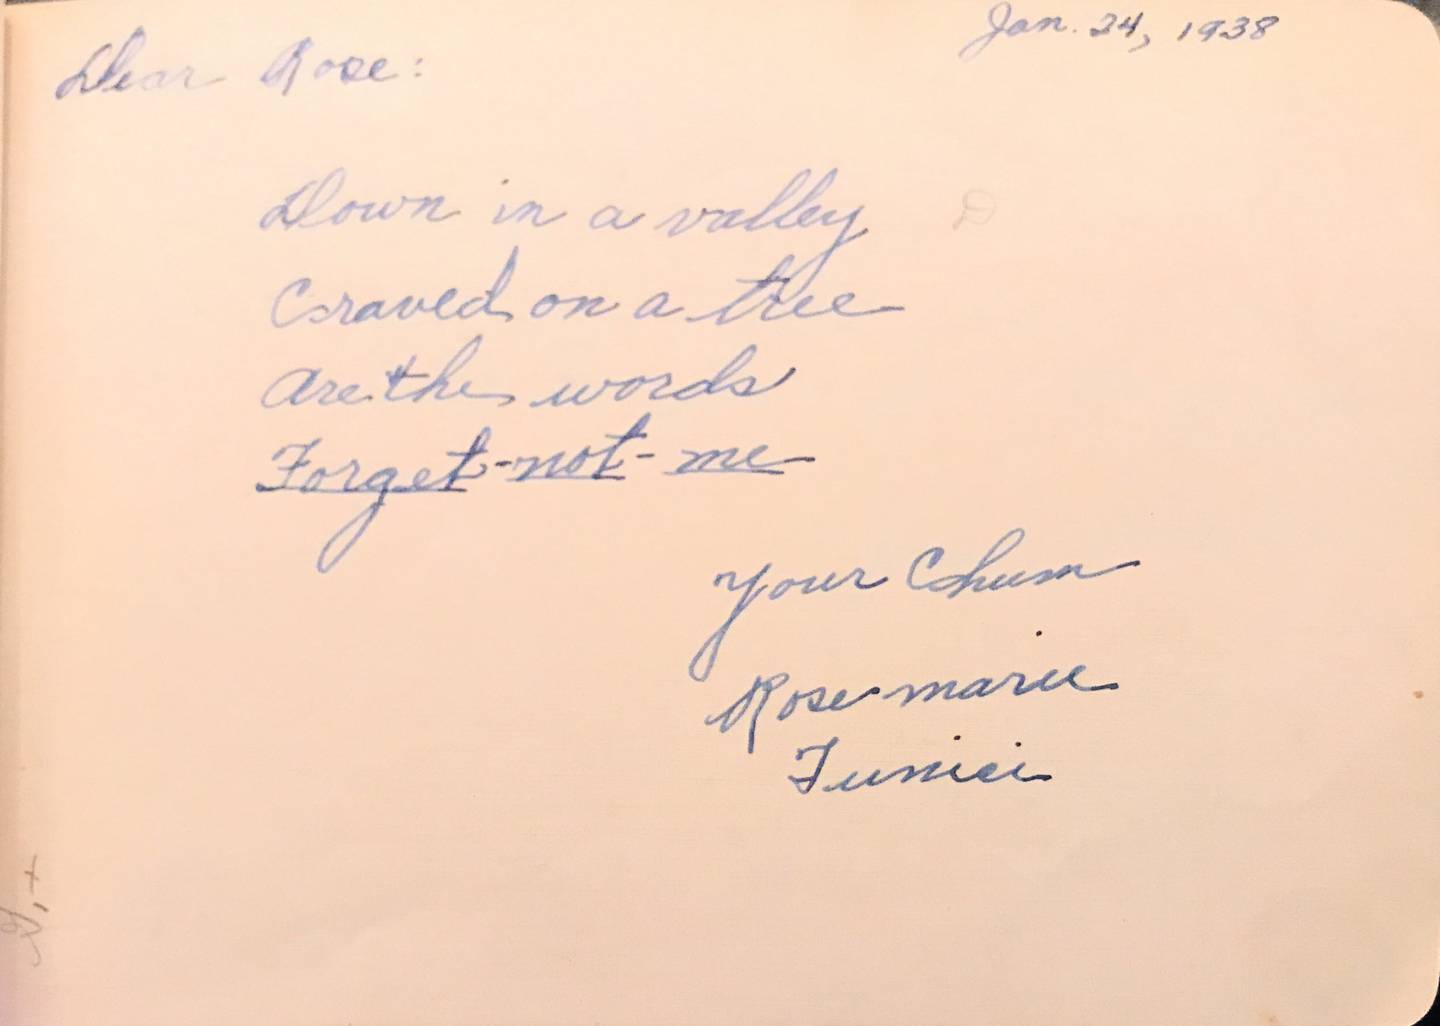 Jan. 24, 1938
Dear Rose:
Down in a valley
Craved on a tree
Are the words
Forget-not-me
Your Chum
Rose marie